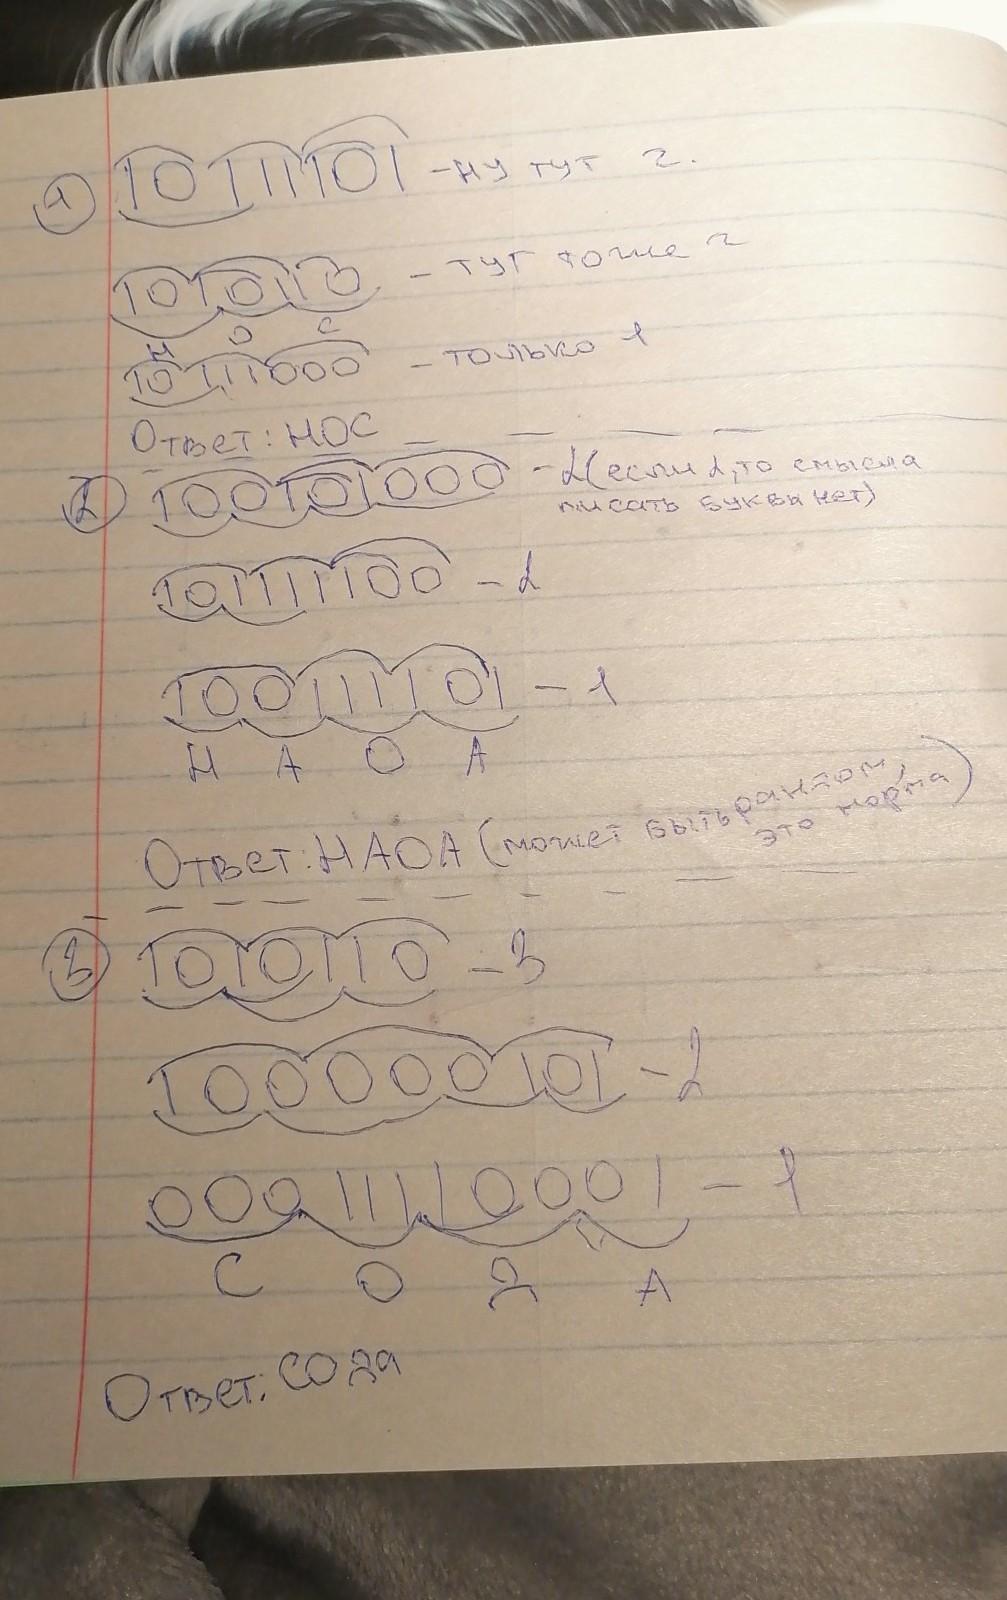 ① 1011101 - ну тут 2.
1010110 - тут тоже 2
Н О С
10111000 - только 1
Ответ: НОС
② 100101000 - 2 (если 2, то смысла
писать буквы нет)
10111100 - 2
100111101 - 1
Н А О А
Ответ: НАОА (может быть рандом,
это норма)
③ 1010110 - 3
100000101 - 2
00011110001 - 1
С О Д А
Ответ: СОДА